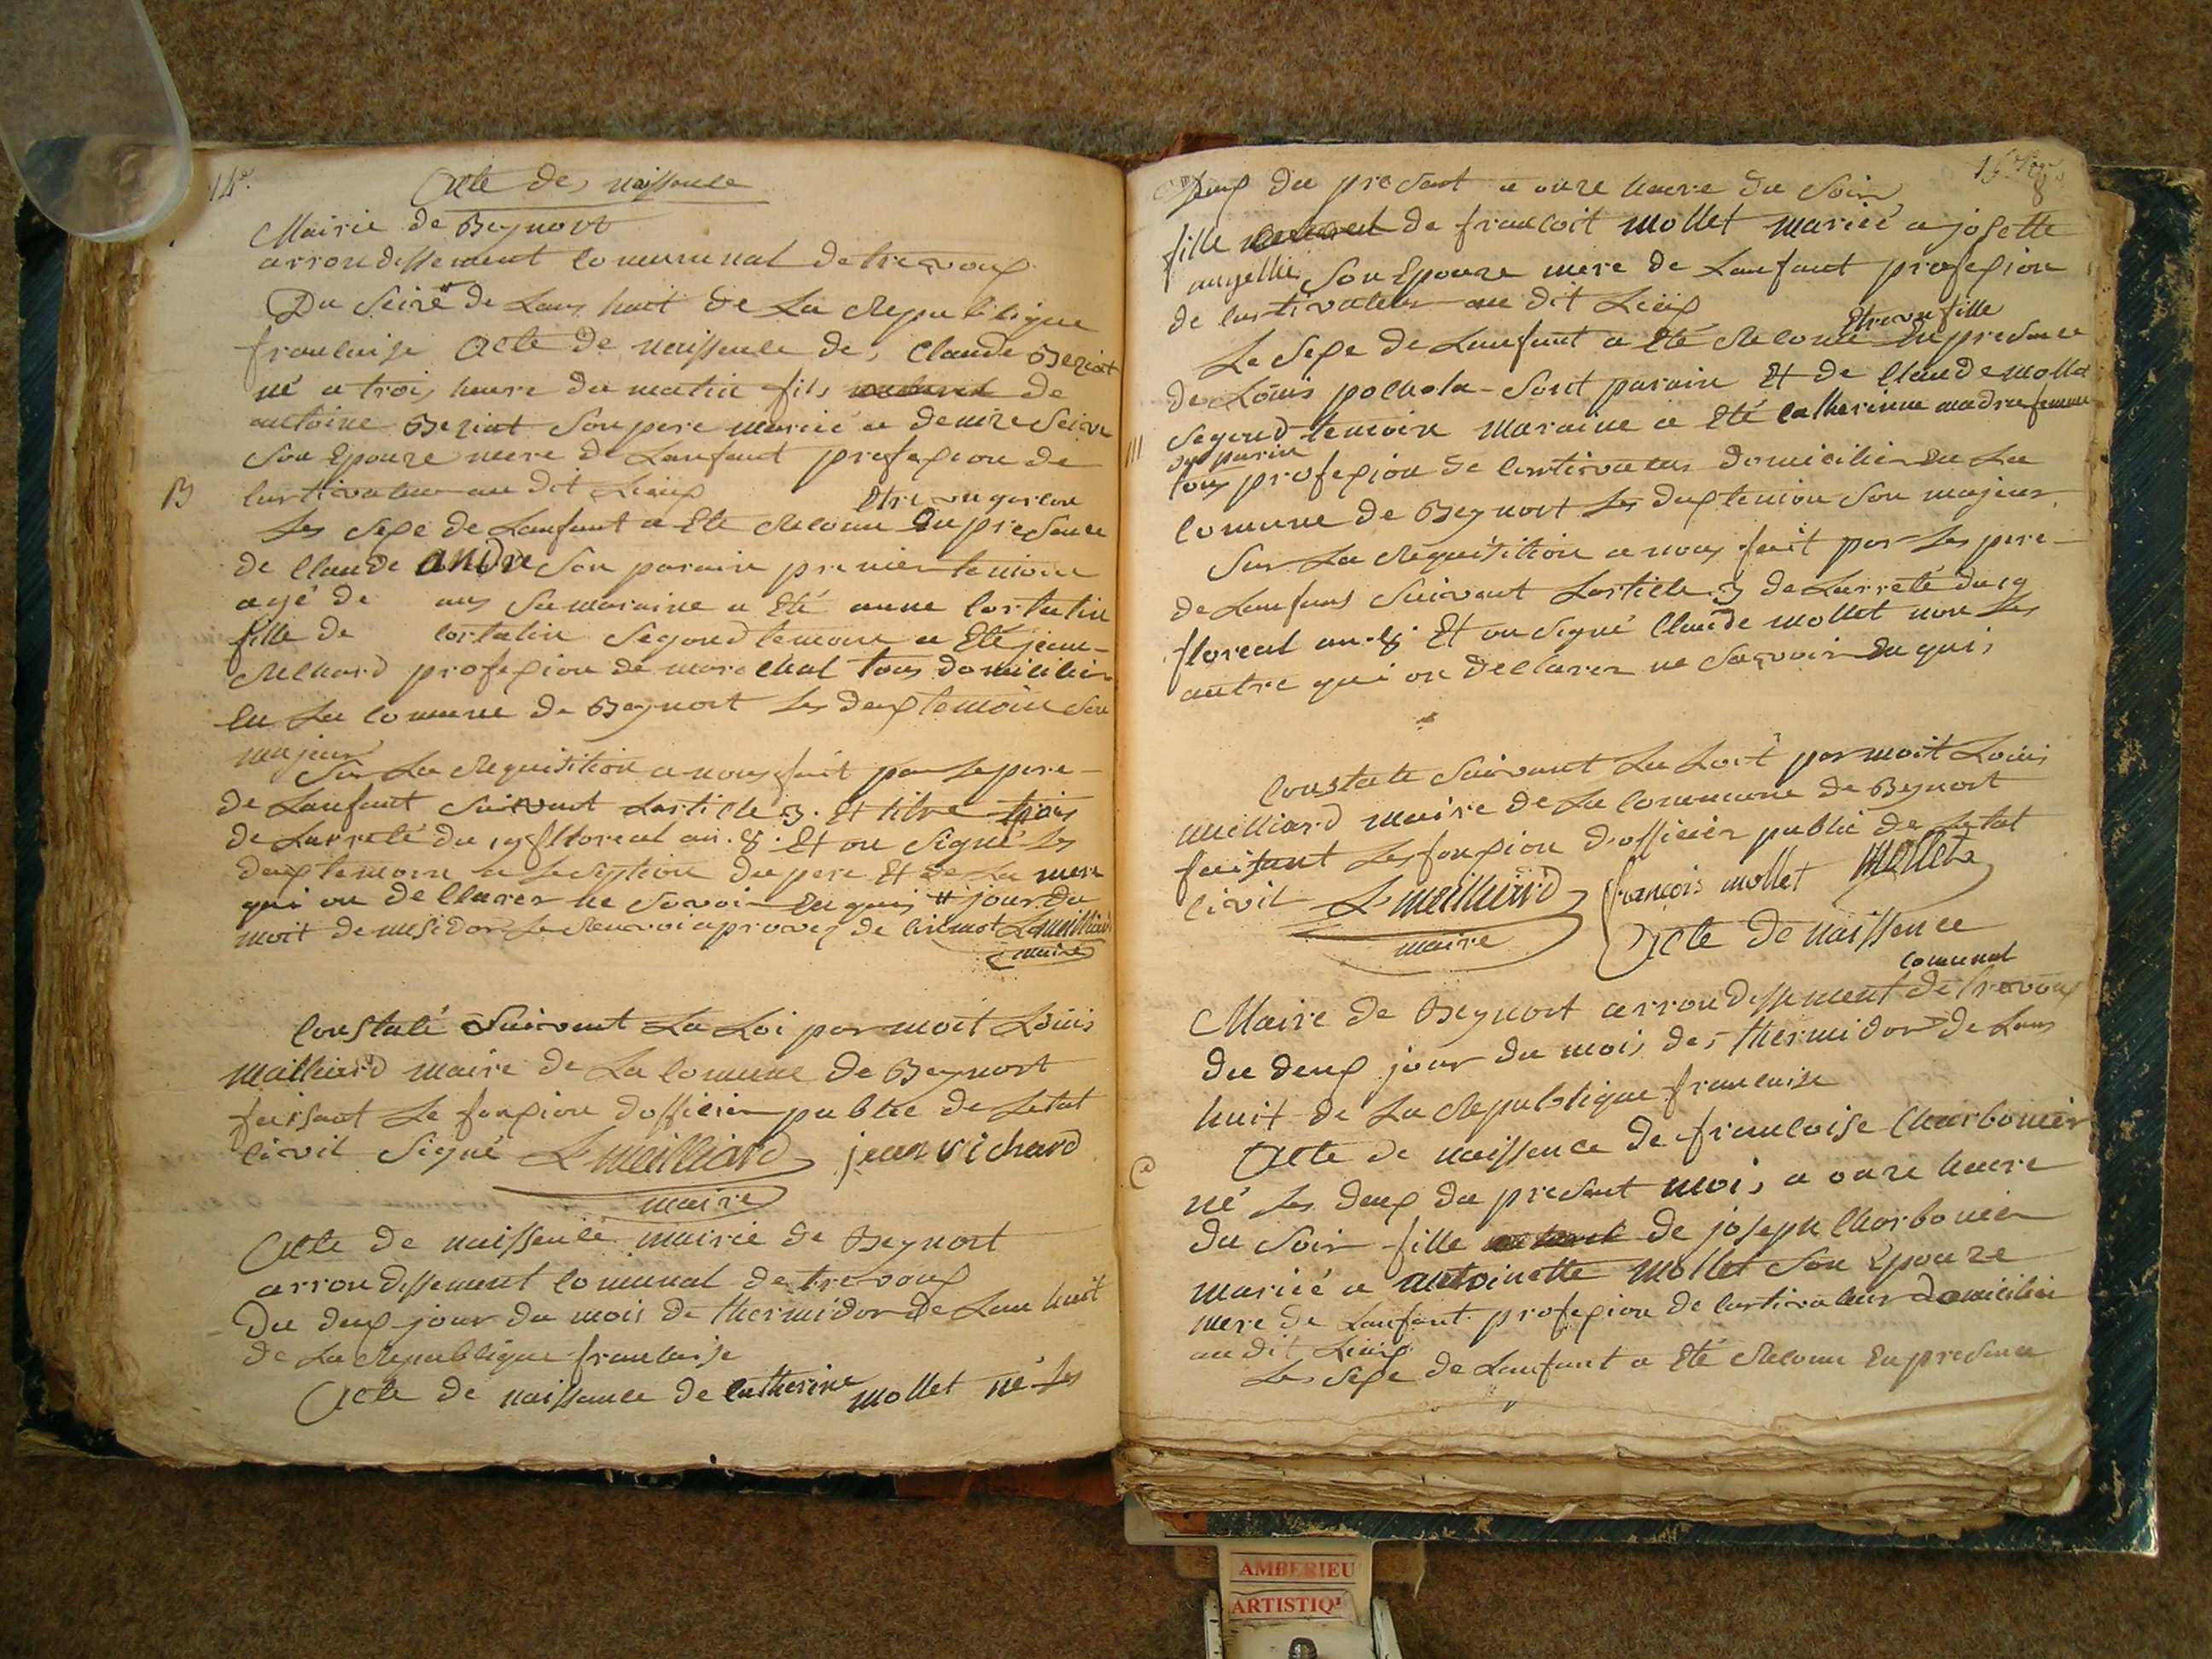 14e.
Acte de naissence
Mairie de Beynost
arrondissement comunal de trevoux
Du seize # de Lans huit de La Republique
francaise Acte de naissence de Claude Beziat
né a trois heure du matin fils de
antoine Beziat Son pere mariée a denize Seive
Son Epouze mere de Lanfant profexion de
B
custivateur au dit Lieux
etre un garcon
Les sexe de Lanfant a Eté Reconu En presence
de Claude andre Son parain premier temoin
agé de ans Sa maraine a Eté anne Costatin
fille de Costatin Segond temoin a Eté jean
Richard profexion de marechal tous domicilier
En La comune de Beynost Les deux temoin Son
majeur
Sur La Requisition a nous fait par Le pere
de Lanfant suivant Lasticle 3. Et titre trois
de Larreté du 19 floreal an. 8. Et on Signé Les
deux temoin a Lesception du pere Et de La mere
qui on declarer ne Savoir En quis # jour du
moit de mesidor Le Renvoi aprovez de cinmot L meilliard
maire
Constaté Suivant La Loi par moit Louis
mailliard maire de La comune de Beynost
faissant Le fonxion dofficier publie de Letat
civil Signé L meilliard jean richard
maire
Acte de naissence mairie de Beynost
arrondissement comunal de trevoux
Du deux jour du mois de thermidor de Lan huit
de La Republique francaise
Acte de naissance de catherine mollet né Les
deux du presant a onze heure du Soir
fille de francoit mollet mariée a josette
Son Epouze mere de Lanfant profexion
de custivateur au dit Lieux
etre une fille
Le Sexe de Lanfant a Eté Reconu En presence
de Louis pochola Sont parain Et de Claude mollet
Segond temoin maraine a Eté catherinne madru femme
du parin
tous profexion de custivateur domicilier En La
comune de Beynost Les dux temion Son majeur
Sur La Requisition a nous fait par Les pere
de Lanfans Suivant Lasticle 3 de Larreté du 19
floreal an. 8. Et on Signé Claude mollet non Les
autre qui on declarer ne Savoir En quis
Constate Suivant La Loit par moit Louis
meilliard maire de La Commune de Beynost
faisant Les fonxion d'officier publie de Letat
civil L meilliard françois mollet Mollet
maire
Acte de naissence
comunal
Maire de Beynost arrondissement de trevoux
du deux jour du mois de thermidor de Lans
huit de La Republique francaise
C
Acte de naissence de francoise Charbonier
né Les deux du presant mois a onze heure
du Soir fille de joseph Charbonier
mariéé a antoinette mollet Son Epouze
mere de Lanfant profexion de custivateur domicilier
au dit Lieux
Les Sexe de Lanfant a Eté Reconu En presence
AMBERIEU
ARTISTIQ